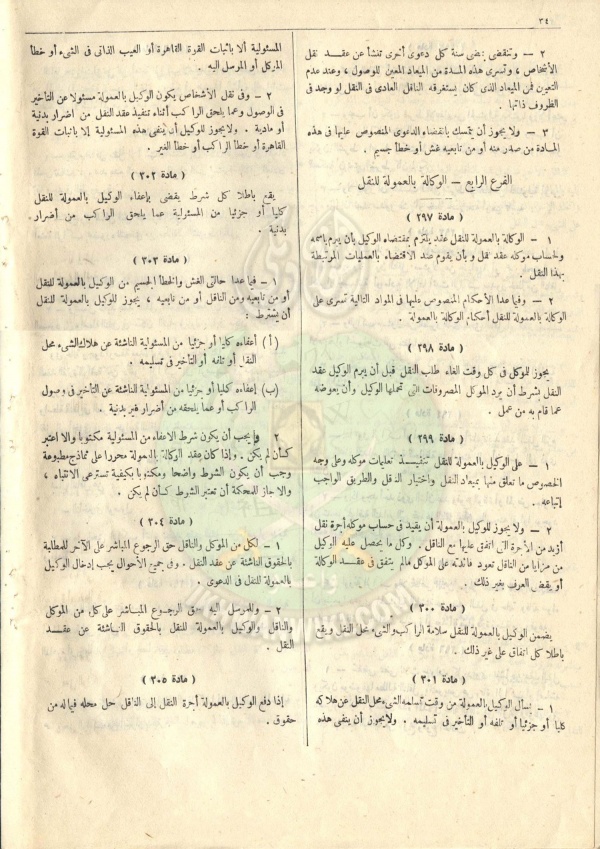 ٣٤
٢ – وتنقضى بمضى سنة كل دعوى أخرى تنشأ عن عقد نقل
الأشخاص ، وتسرى هذه المدة من الميعاد المعين للوصول ، وعند عدم
التعيين فمن الميعاد الذى كان يستغرقه الناقل العادى فى النقل لو وجد فى
الظروف ذاتها .
٣ – ولا يجوز أن يتمسك بانقضاء الدعوى المنصوص عليها فى هذه
المادة من صدر منه أو من تابعيه غش أو خطأ جسيم .
الفرع الرابع – الوكالة بالعمولة للنقل
( مادة ٢٩٧ )
١ – الوكالة بالعمولة للنقل عقد يلتزم بمقتضاه الوكيل بأن يبرم باسمه
ولحساب موكله عقد نقل وبأن يقوم عند الاقتضاء بالعمليات المرتبطة
بهذا النقل .
٢ – وفيما عدا الأحكام المنصوص عليها فى المواد التالية تسرى على
الوكالة بالعمولة للنقل أحكام الوكالة بالعمولة .
( مادة ٢٩٨ )
يجوز للموكل فى كل وقت الغاء طلب النقل قبل أن يبرم الوكيل عقد
النقل بشرط أن يرد الموكل المصروفات التى تحملها الوكيل وأن يعوضه
عما قام به من عمل .
( مادة ٢٩٩ )
١ – على الوكيل بالعمولة للنقل تنفيذ تعليمات موكله وعلى وجه
الخصوص ما تعلق منها بميعاد النقل واختيار الناقل والطريق الواجب
إتباعه .
٢ – ولا يجوز للوكيل بالعمولة أن يقيد فى حساب موكله أجرة نقل
أزيد من الأجرة التى اتفق عليها مع الناقل . وكل ما يحصل عليه الوكيل
من مزايا من الناقل تعود فائدته على الموكل مالم يتفق فى عقد الوكالة
أو يقض العرف بغير ذلك .
( مادة ٣٠٠ )
يضمن الوكيل بالعمولة للنقل سلامة الراكب والشىء محل النقل ويقع
باطلا كل اتفاق على غير ذلك .
( مادة ٣٠١ )
١ – يسأل الوكيل بالعمولة من وقت تسلمه الشىء محل النقل عن هلاكه
كليا أو جزئيا أو تلفه أو التأخير فى تسليمه . ولا يجوز أن ينفى هذه
المسئولية ألا باثبات القوة القاهرة أو العيب الذاتى فى الشىء أو خطأ
الموكل أو المرسل اليه .
٢ – وفى نقل الأشخاص يكون الوكيل بالعمولة مسئولا عن التأخير
فى الوصول وعما يلحق الراكب أثناء تنفيذ عقد النقل من اضرار بدنية
أو مادية . ولا يجوز للوكيل أن ينفى هذه المسئولية إلا باثبات القوة
القاهرة أو خطأ الراكب أو خطأ الغير .
( مادة ٣٠٢ )
يقع باطلا كل شرط يقضى بإعفاء الوكيل بالعمولة للنقل
كليا أو جزئيا من المسئولية عما يلحق الراكب من أضرار
بدنية .
( مادة ٣٠٣ )
١ – فيما عدا حالتى الغش والخطأ الجسيم من الوكيل بالعمولة للنقل
أو من تابعيه ومن الناقل أو من تابعيه ، يجوز للوكيل بالعمولة للنقل
أن يشترط :
( أ ) أعفاءه كليا أو جزئيا من المسئولية الناشئة عن هلاك الشىء محل
النقل أو تلفه أو التأخير فى تسليمه .
(ب) إعفاءه كليا أو جزئيا من المسئولية الناشئة عن التأخير فى وصول
الراكب أو عما يلحقه من أضرار غير بدنية .
٢ – ويجب أن يكون شرط الاعفاء من المسئولية مكتوبا والا اعتبر
كأن لم يكن . وإذا كان عقد الوكالة بالعمولة محررا على نماذج مطبوعة
وجب أن يكون الشرط واضحا ومكتوبا بكيفية تسترعى الانتباه ،
والا جاز للمحكمة أن تعتبر الشرط كأن لم يكن .
( مادة ٣٠٤ )
١ – لكل من الموكل والناقل حق الرجوع المباشر على الآخر للمطالبة
بالحقوق الناشئة عن عقد النقل . وفى جميع الأحوال يجب إدخال الوكيل
بالعمولة للنقل فى الدعوى .
٢ – وللمرسل اليه حق الرجوع المباشر على كل من الموكل
والناقل والوكيل بالعمولة للنقل بالحقوق الناشئة عن عقد
النقل .
( مادة ٣٠٥ )
إذا دفع الوكيل بالعمولة أجرة النقل إلى الناقل حل محله فيما له من
حقوق .